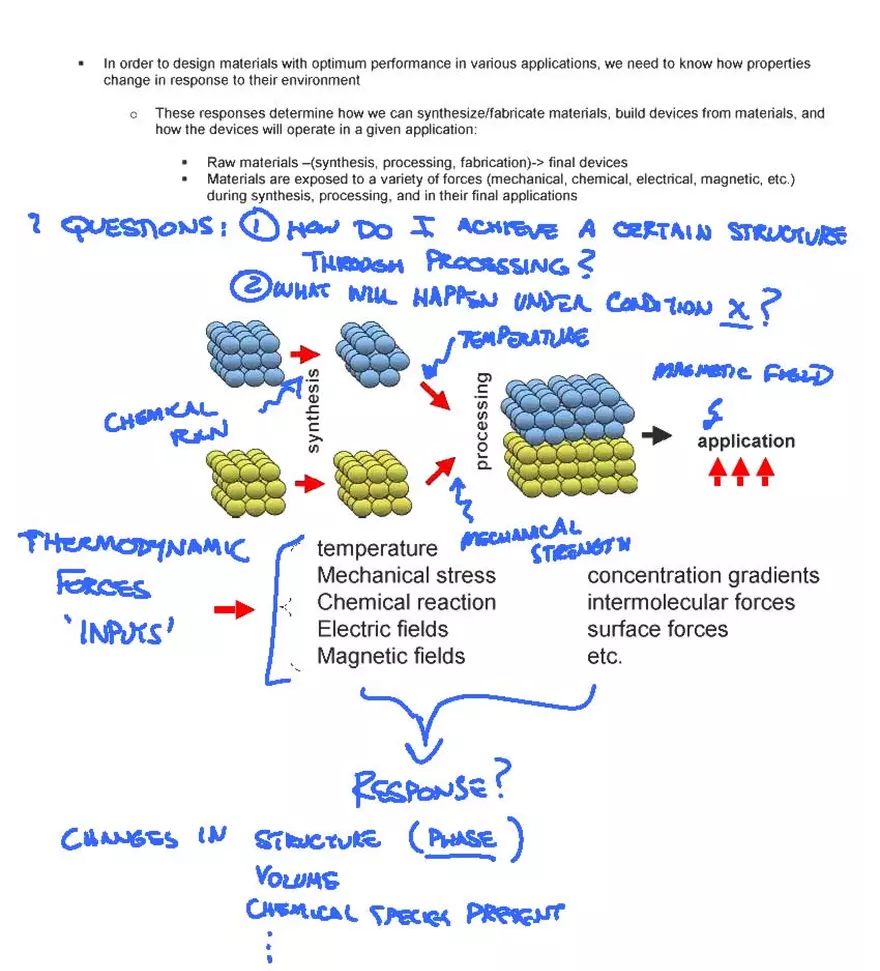 ▪ In order to design materials with optimum performance in various applications, we need to know how properties
change in response to their environment
o These responses determine how we can synthesize/fabricate materials, build devices from materials, and
how the devices will operate in a given application:
▪ Raw materials –(synthesis, processing, fabrication)-> final devices
▪ Materials are exposed to a variety of forces (mechanical, chemical, electrical, magnetic, etc.)
during synthesis, processing, and in their final applications
2 QUESTIONS: ① HOW DO I ACHIEVE A CERTAIN STRUCTURE
THROUGH PROCESSING?
② WHAT WILL HAPPEN UNDER CONDITION X?
TEMPERATURE
MAGNETIC FIELD
CHEMICAL
RXN
synthesis
processing
application
MECHANICAL
STRENGTH
THERMODYNAMIC
FORCES
'INPUTS'
temperature
Mechanical stress
Chemical reaction
Electric fields
Magnetic fields
concentration gradients
intermolecular forces
surface forces
etc.
RESPONSE?
CHANGES IN STRUCTURE (PHASE)
VOLUME
CHEMICAL SPECIES PRESENT
⋮